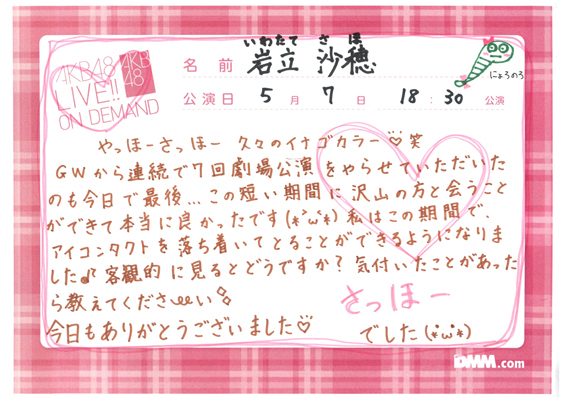 AKB48
LIVE!!
ON DEMAND
AKB
48
いわたて さほ
名前 岩立 沙穂
にょろのろ
公演日 5月 7日 18:30 公演
やっほーさっほー 久々のイナゴカラー♡笑
GWから連続で7回劇場公演をやらせていただいた
のも今日で最後...この短い期間に沢山の方と会うこと
ができて本当に良かったです(*´ω`*)私はこの期間で、
アイコンタクトを落ち着いてとることができるようになりま
した♪客観的に見るとどうですか?気付いたことがあった
ら教えてくださぃい
さっほー
今日もありがとうございました♡ でした(*´ω`*)
DMM.com